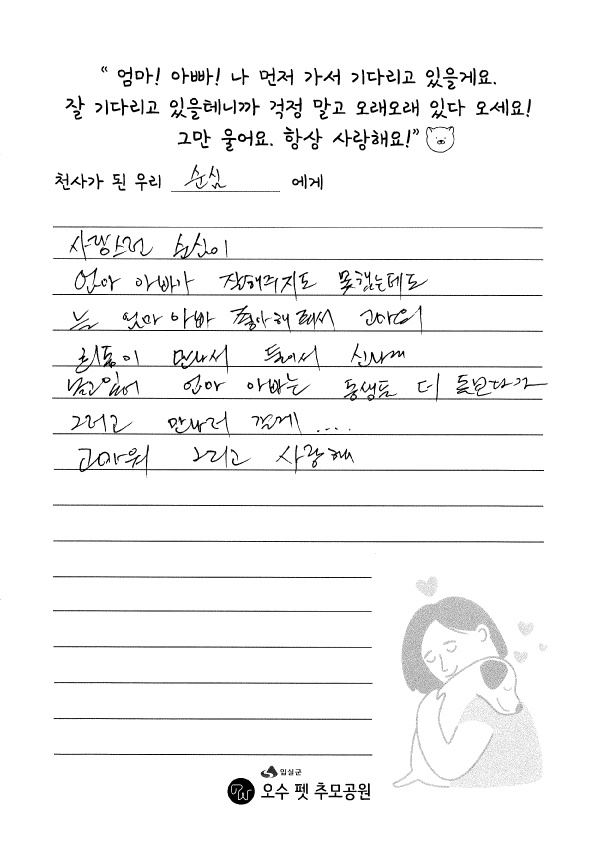 “ 엄마! 아빠! 나 먼저 가서 기다리고 있을게요.
잘 기다리고 있을테니까 걱정 말고 오래오래 있다 오세요!
그만 울어요. 항상 사랑해요!”
천사가 된 우리 순심 에게
사랑스런 순심이
엄마 아빠가 잘해주지도 못했는데도
늘 엄마 아빠 좋아해줘서 고마워
만나서 둘이서 신나게
놀고있어 엄마 아빠는 동생들 더 돌보다가
그리고 만나러 갈게 ....
고마워 그리고 사랑해
임실군
오수 펫 추모공원